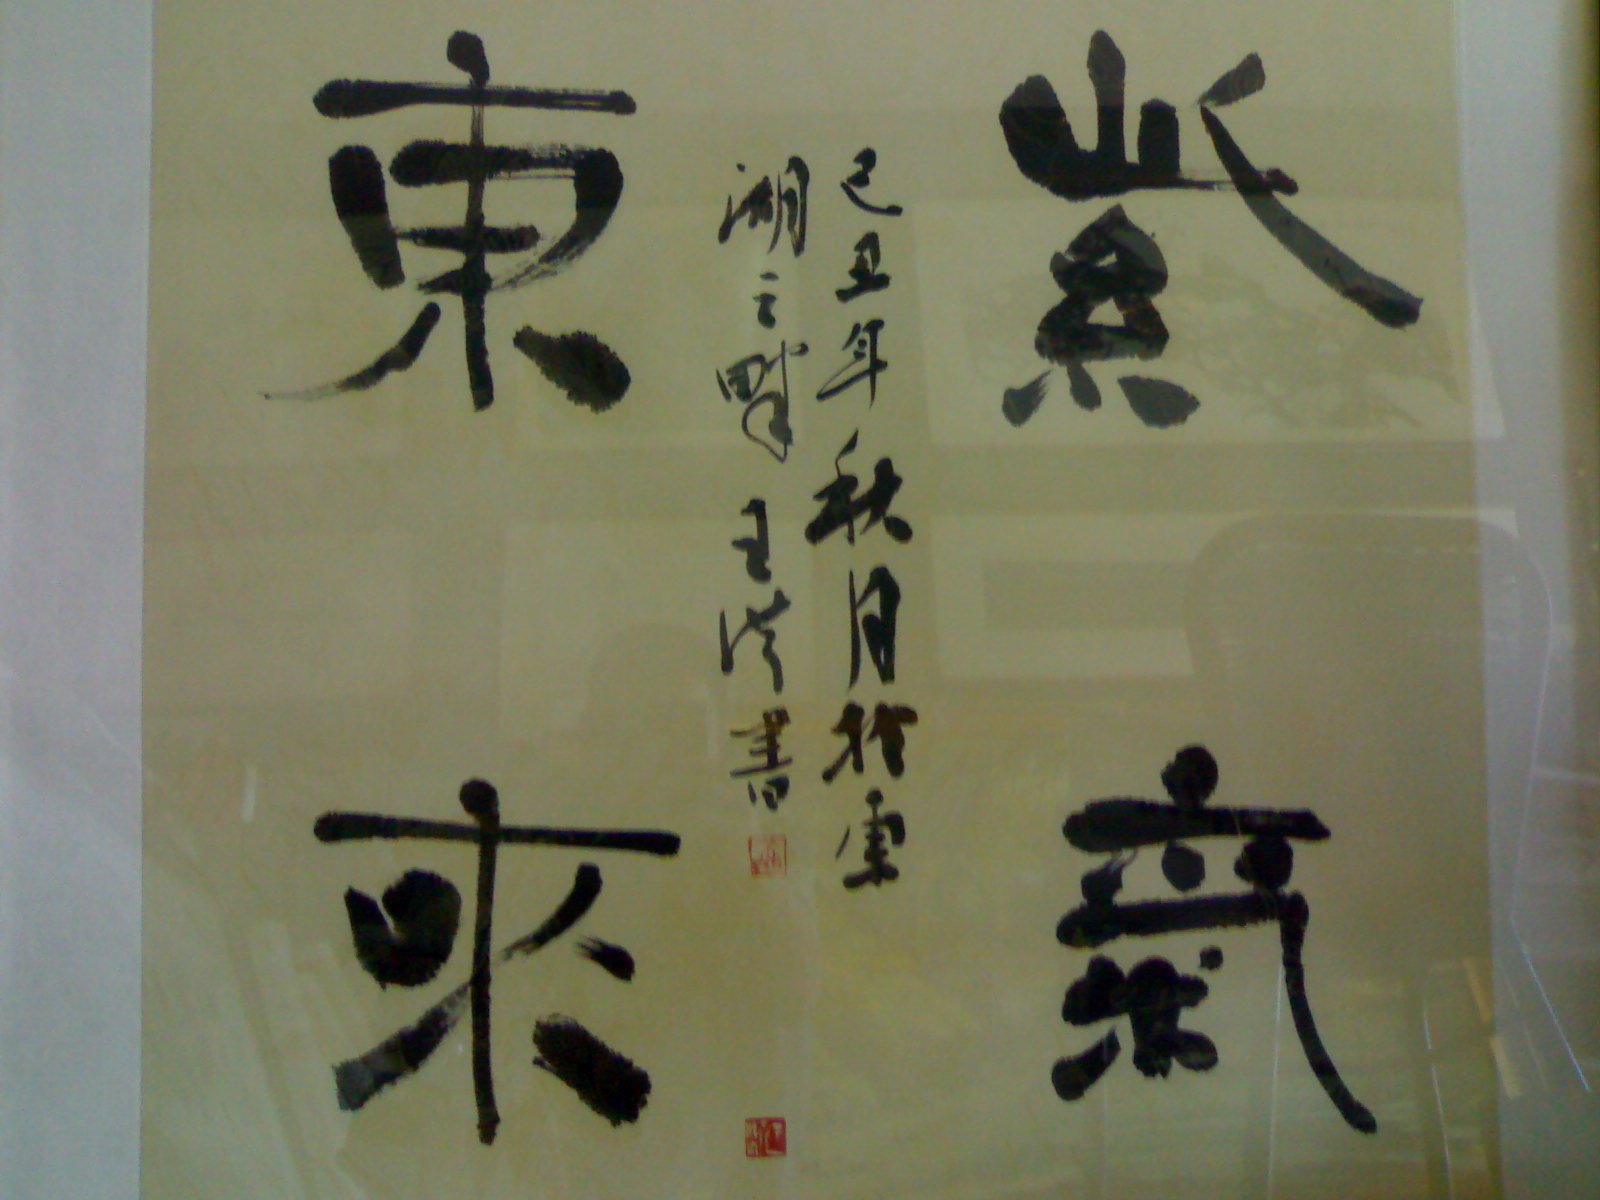 紫氣
東來
己丑年秋月於雲
湖之畔王洪書